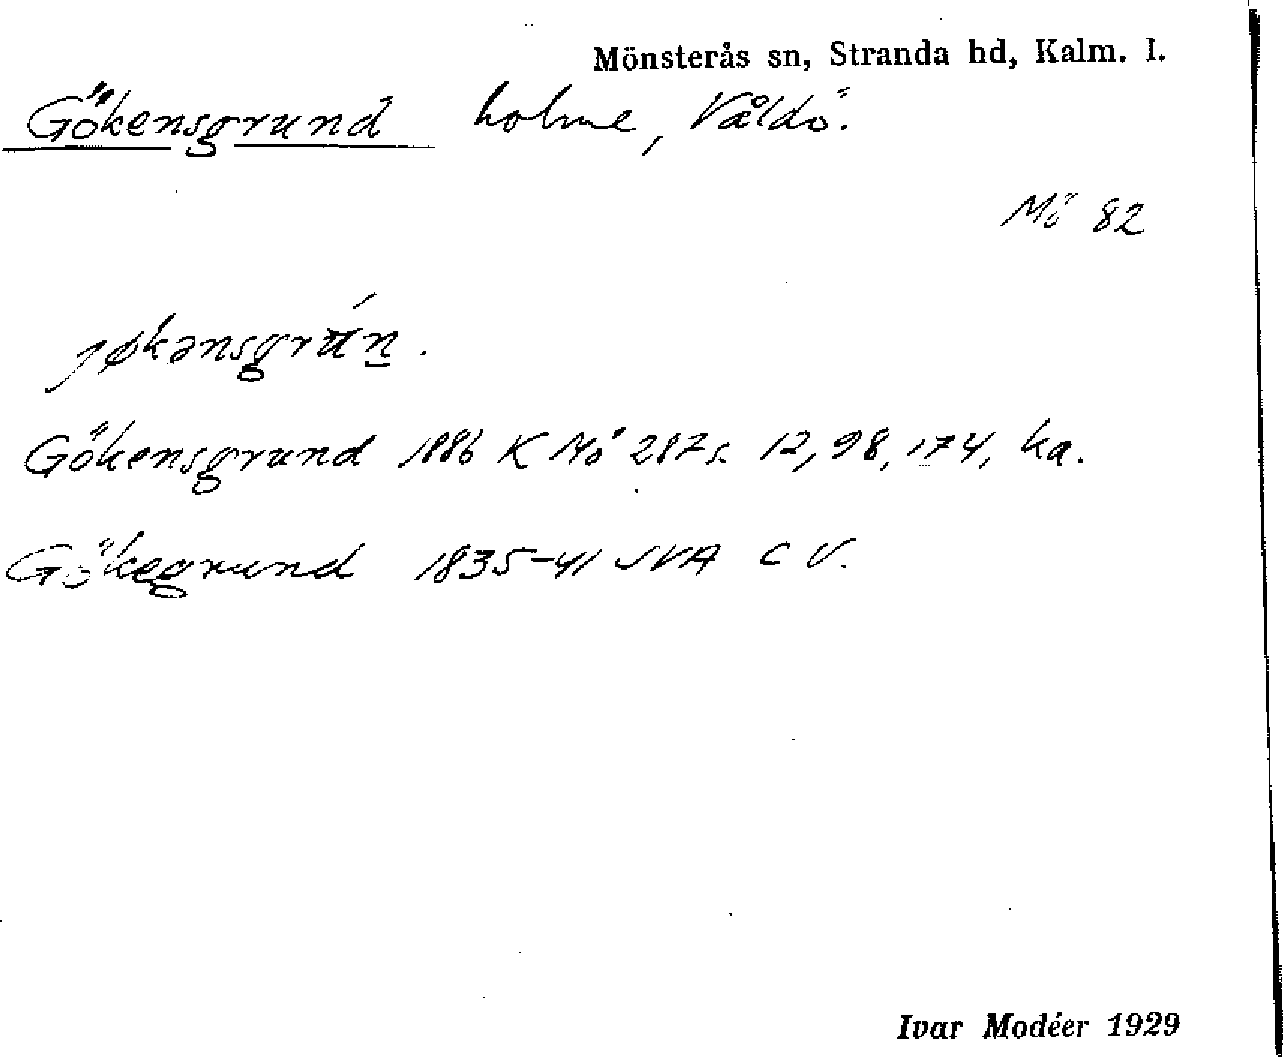 Mönsterås sn, Stranda hd, Kalm. l.
Gökensgrund holme, Våldö.
Mö 82
jøkənsgrun.
Gökensgrund 1886 K Mö 287 s. 12, 98, 174, ka.
Gökegrund 1835-41 JVA C V.
Ivar Modéer 1929